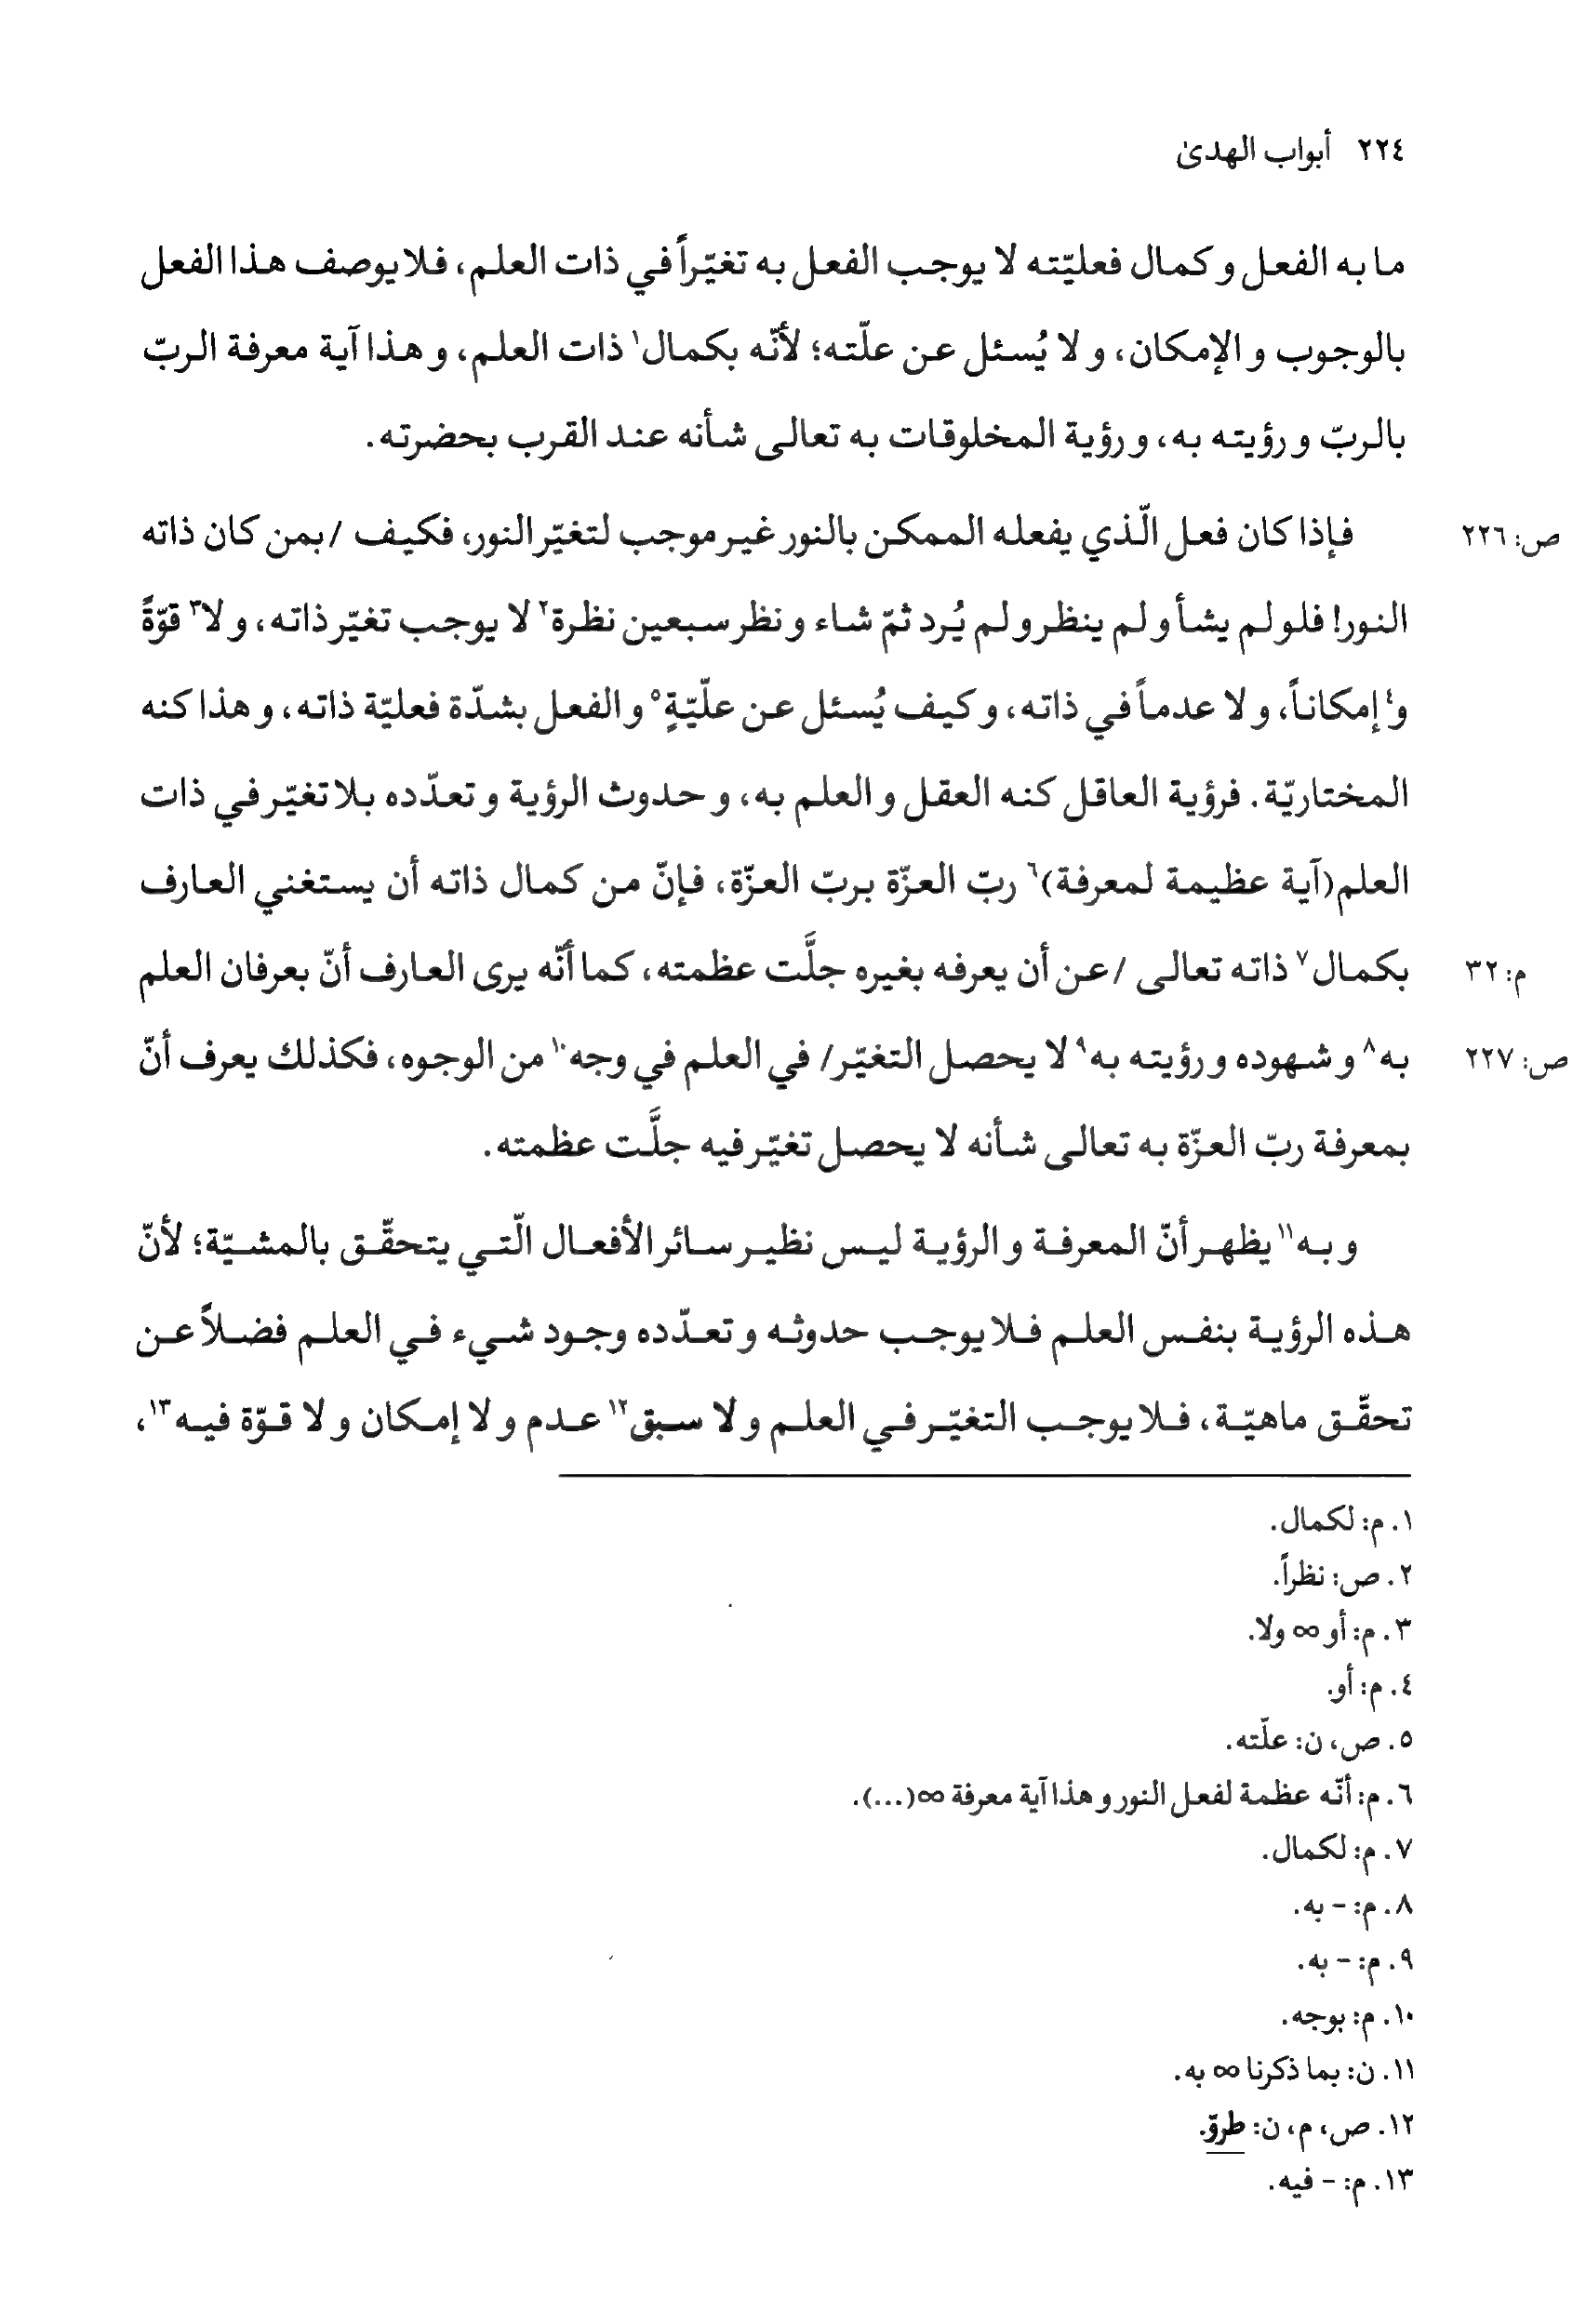 ٢٢٤ أبواب الهدىٰ
ما به الفعل و كمال فعليّته لا يوجب الفعل به تغيّراً في ذات العلم، فلا يوصف هذا الفعل
بالوجوب و الإمكان، و لا يُسئل عن علّته؛ لأنّه بكمال١ ذات العلم، و هذا آية معرفة الربّ
بالربّ و رؤيته به، و رؤية المخلوقات به تعالى شأنه عند القرب بحضرته.
ص: ٢٢٦ فإذا كان فعل الّذي يفعله الممكن بالنور غير موجب لتغيّر النور، فكيف / بمن كان ذاته
النور! فلو لم يشأ و لم ينظر و لم يُرد ثمّ شاء و نظر سبعين نظرة٢ لا يوجب تغيّر ذاته، و لا٣ قوّةً
و٤ إمكاناً، و لا عدماً في ذاته، و كيف يُسئل عن علّيّةٍ٥ و الفعل بشدّة فعليّة ذاته، و هذا كنه
المختاريّة. فرؤية العاقل كنه العقل و العلم به، و حدوث الرؤية و تعدّده بلا تغيّر في ذات
العلم(آية عظيمة لمعرفة)٦ ربّ العزّة بربّ العزّة، فإنّ من كمال ذاته أن يستغني العارف
م: ٣٢ بكمال٧ ذاته تعالى / عن أن يعرفه بغيره جلَّت عظمته، كما أنّه يرى العارف أنّ بعرفان العلم
ص: ٢٢٧ به٨ و شهوده و رؤيته به٩ لا يحصل التغيّر/ في العلم في وجه١٠ من الوجوه، فكذلك يعرف أنّ
بمعرفة ربّ العزّة به تعالى شأنه لا يحصل تغيّر فيه جلَّت عظمته.
و به١١ يظهر أنّ المعرفة و الرؤية ليس نظير سائر الأفعال الّتي يتحقّق بالمشيّة؛ لأنّ
هذه الرؤية بنفس العلم فلا يوجب حدوثه و تعدّده وجود شيء في العلم فضلاً عن
تحقّق ماهيّة، فلا يوجب التغيّر في العلم و لا سبق١٢ عدم و لا إمكان و لا قوّة فيه١٣،
١. م: لكمال.
٢. ص: نظراً.
٣. م: أو ∞ ولا.
٤. م: أو.
٥. ص، ن: علّته.
٦. م: أنّه عظمة لفعل النور و هذا آية معرفة ∞(...).
٧. م: لكمال.
٨. م: - به.
٩. م: - به.
١٠. م: بوجه.
١١. ن: بما ذكرنا ∞ به.
١٢. ص، م، ن: طروّ.
١٣. م: - فيه.